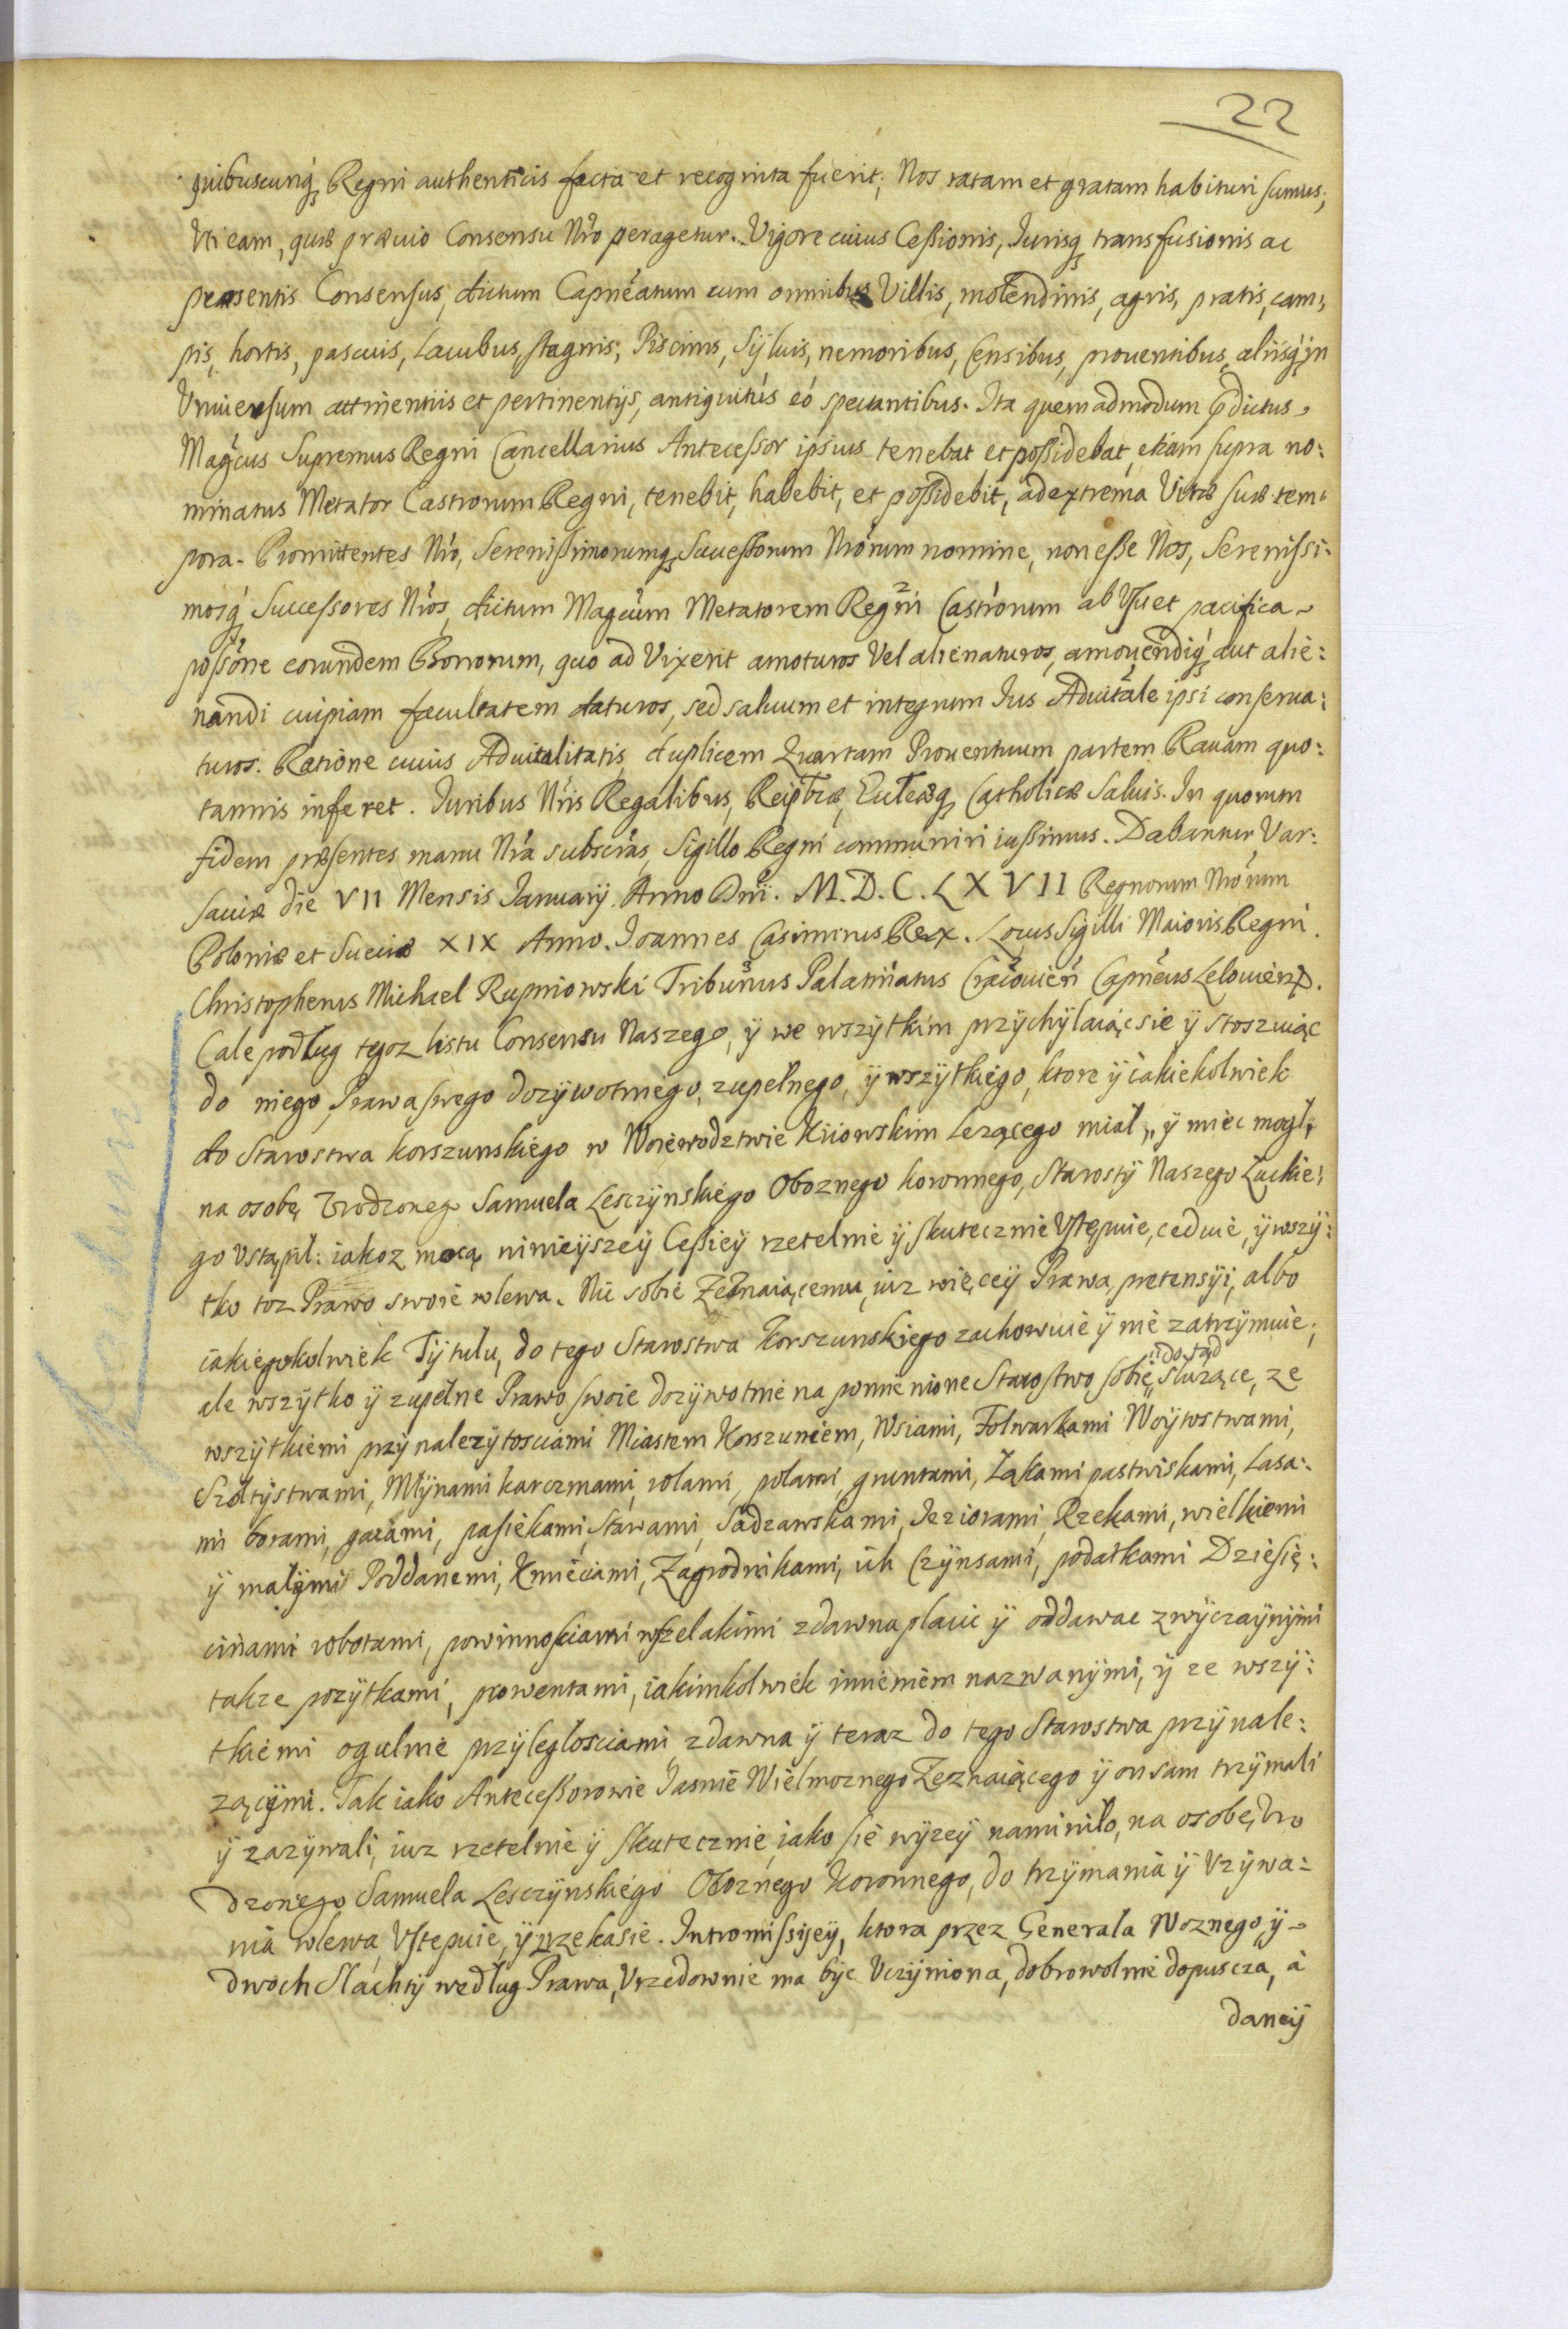 22
quibuscunq́ꝫ Regni authenticis facta et recognita fuerit, Nos ratam et gratam habituri sumus,
Uti eam, quæ præuio Consensu Nr̃o peragetur. Vigore cuius Cessionis, Jurisq́ꝫ transfusionis ac
præsentis Consensus, dictum Capnẽatum cum omnibus Villis, molendinis, agris, pratis, cam:
pis, hortis, pascuis, Lacubus, stagnis, Piscinis, Syluis, nemoribus, Censibus, prouentibus, aliisq́ꝫ in
Vniuersum attinentiis et pertinentijs, antiquitús eó spectantibus. Ita quem admodum p̃dictus
Magc̃us Supremus Regni Cancellarius Antecessor ipsius tenebat et possidebat, etiam supra no:
minatus Metator Castrorum Regni, tenebit, habebit, et possidebit, ad extrema Vitæ suæ tem:
pora. Promittentes Nr̃o, Serenissimorumq́ꝫ Successorum Nrõrum nomine, non esse Nos, Serenissi:
mosq́ꝫ Successores Nr̃os, dictum Magcũm Metatorem Regñi Castrorum ab Vsu et pacifica
possõne eorundem Bonorum, quo ad Vixerit amoturos Vel alienaturos, amouendiq́ꝫ aut alie:
nandi cuipiam facultatem daturos, sed saluum et integrum Ius Aduitale ipsi conserua:
turos. Ratione cuius Aduitalitatis duplicem Quartam Prouentuum partem Rauam quo:
tannis inferet. Iuribus Nr̃is Regalibus, Reipbcæ, Eccleæq́ꝫ Catholicæ Saluis. In quorum
fidem præsentes manu Nr̃a subscras, Sigillo Regni communiri iussimus. Dabantur Var:
sauiæ die VII Mensis Januarij Anno Dñi. M.D.C.LXVII Regnorum Nrõrum
Poloniæ et Sueciæ XIX Anno. Joannes Casimirus Rex. Locus Sigilli Maioris Regni.
Christopherus Michael Rupniowski Tribunus Palatinatus Cracouieñ Capnẽus Lelouieñ.
Cale podług tegoz listu Consensu Naszego, ÿ we wszytkim przychylaiąc sie ÿ stoszuiąc
do niego, Prawa swego dozywotnego, zupełnego, ÿ wszytkiego, ktore ÿ iakiekolwiek
do Starostwa Korszunskiego w Woiewodztwie Kiiowskim Lezącego miał, ÿ miec mogł,
na osobę Urodzoneg Samuela Lesczynskiego Oboznego koronnego, Starosty Naszego Łuckie:
go vstąpił: iakoz mocą ninieyszey Cessiey rzetelnie ÿ skutecznie Vstępuie, ceduie, ÿ wszy:
tko toz Prawo swoie wlewa. Nic sobie Zeznaiącemu iuz więcey Prawa, pretensyi, albo
iakiegokolwiek Tÿtulu, do tego Starostwa Korszunskiego zachowuie ÿ nie zatrzymuie,
ale wszytko ÿ zupełne Prawo swoie dozywotnie na pomienione Starostwo sobie "do tąd" służące, ze
wszytkiemi przynalezytosciami Miastem Korszuniem, Wsiami, Folwarkami Woytostwami,
Szołtystwami, Młynami karczmami, rolami, polami, gruntami, Łąkami pastwiskami, Lasa:
mi borami, gaiami, pasiekami, Stawami, Sadzawkami, Jeziorami, Rzekami, wielkiemi
ÿ małymi Poddanemi, Kmieciami, Zagrodnikami, ich Czynsami, podatkami Dziesię:
cinami robotami, powinnosciami wszelakimi zdawna płacic ÿ oddawac zwyczaynymi
takze pozytkami, prowentami, iakimkolwiek imieniem nazwanymi, ÿ ze wszy:
tkiemi ogulnie przyległosciami zdawna ÿ teraz do tego Starostwa przynale:
zącymi. Tak iako Antecessorowie Jasnie Wielmoznego Zeznaiącego ÿ on sam trzymali
ÿ zazywali, iuz rzetelnie ÿ skutecznie, iako sie wyzey namieniło, na osobę Vro
dzonego Samuela Lesczynskiego Oboznego Koronnego, do trzymania ÿ Vzywa:
nia wlewa, Vstępuie, ÿ przekasie. Intromissyey, ktora przez Generala Woznego, ÿ
dwoch Slachty według Prawa, Vrzedownie ma byc Vczyniona, dobrowolnie dopuscza, à
daney
Korsuń